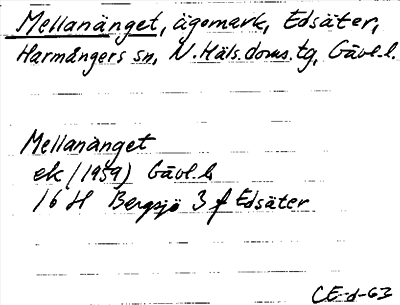 Mellanänget, ägomark, Edsäter,
Harmångers sn, N. Häls. doms. tg, Gävl. l.
Mellanänget
ek (1959) Gävl. l.
16 H Bergsjö 3 f Edsäter
CE-d-63